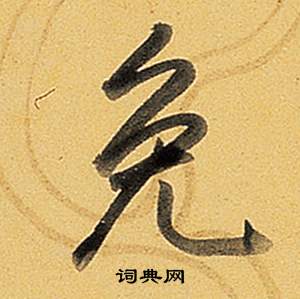 免
词典网